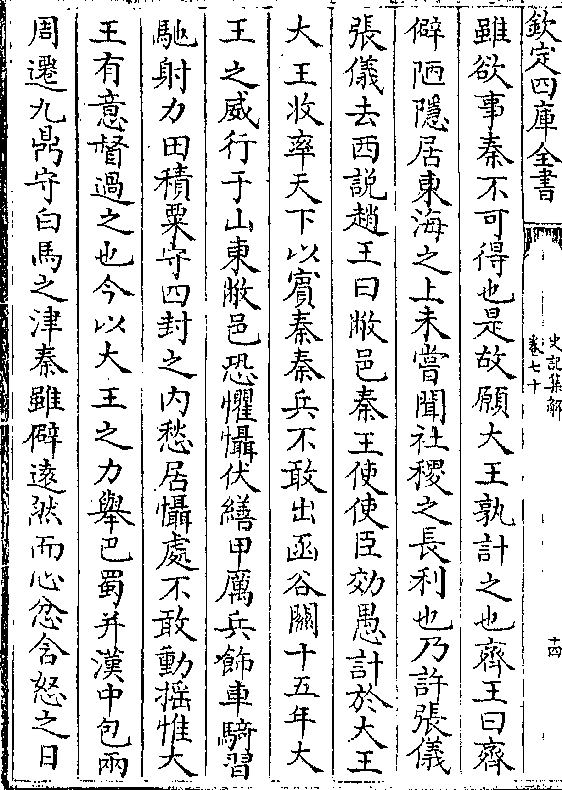 欽定四庫全書
史記集解
卷七十
十四
雖欲事秦不可得也是故願大王孰計之也齊王曰齊
僻陋隱居東海之上未嘗聞社稷之長利也乃許張儀
張儀去西説趙王曰敝邑秦王使使臣効愚計於大王
大王收率天下以賓秦秦兵不敢出函谷關十五年大
王之威行于山東敝邑恐懼懾伏繕甲厲兵飾車騎習
馳射力田積粟守四封之内愁居懾處不敢動摇惟大
王有意督過之也今以大王之力舉巴蜀并漢中包兩
周遷九鼎守白馬之津秦雖僻逺然而心忿含怒之日